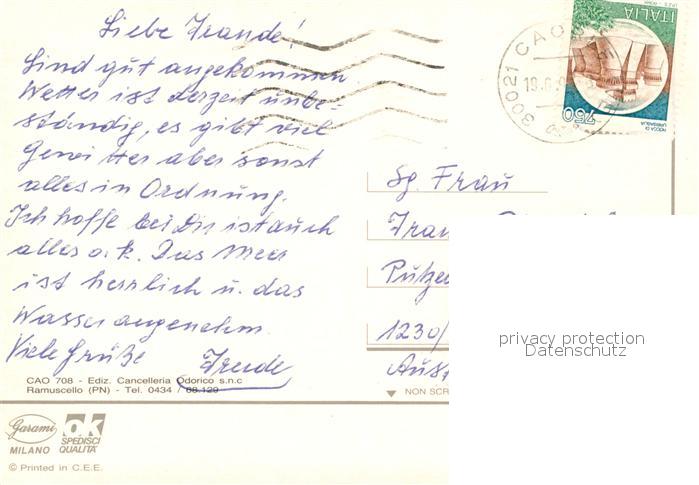 Liebe Traude!
Sind gut angekommen
Wetter ist derzeit unbe-
ständig, es gibt viel
Gewitter aber sonst
alles in Ordnung.
Ich hoffe bei Dir ist auch
alles o.k. Das Meer
ist herrlich u. das
Wasser angenehm.
Viele Grüße Trude
CAO 708 - Ediz. Cancelleria Odorico s.n.c
Ramuscello (PN) - Tel. 0434 / 68.129
Garami
MILANO
ok
SPEDISCI
QUALITA'
© Printed in C.E.E.
ITALIA
750
ROCCA DI
URBISAGLIA
30021 CAO
19.6
Sg. Frau
1230/
NON SCR
privacy protection
Datenschutz